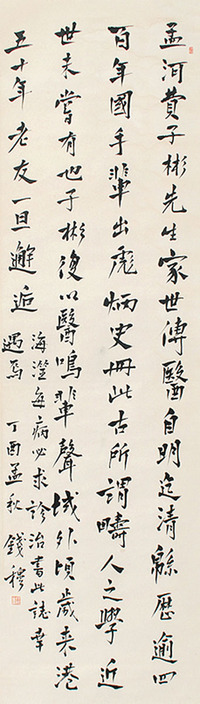 孟河費子彬先生家世傳醫自明迄清緜歷逾四
百年國手輩出彪炳史冊此古所謂疇人之學近
世未嘗有也子彬復以醫鳴輩聲域外頃歲来港
五十年老友一旦邂逅
海濱每病必求診治書此誌幸
遇焉 丁酉孟秋 錢穆